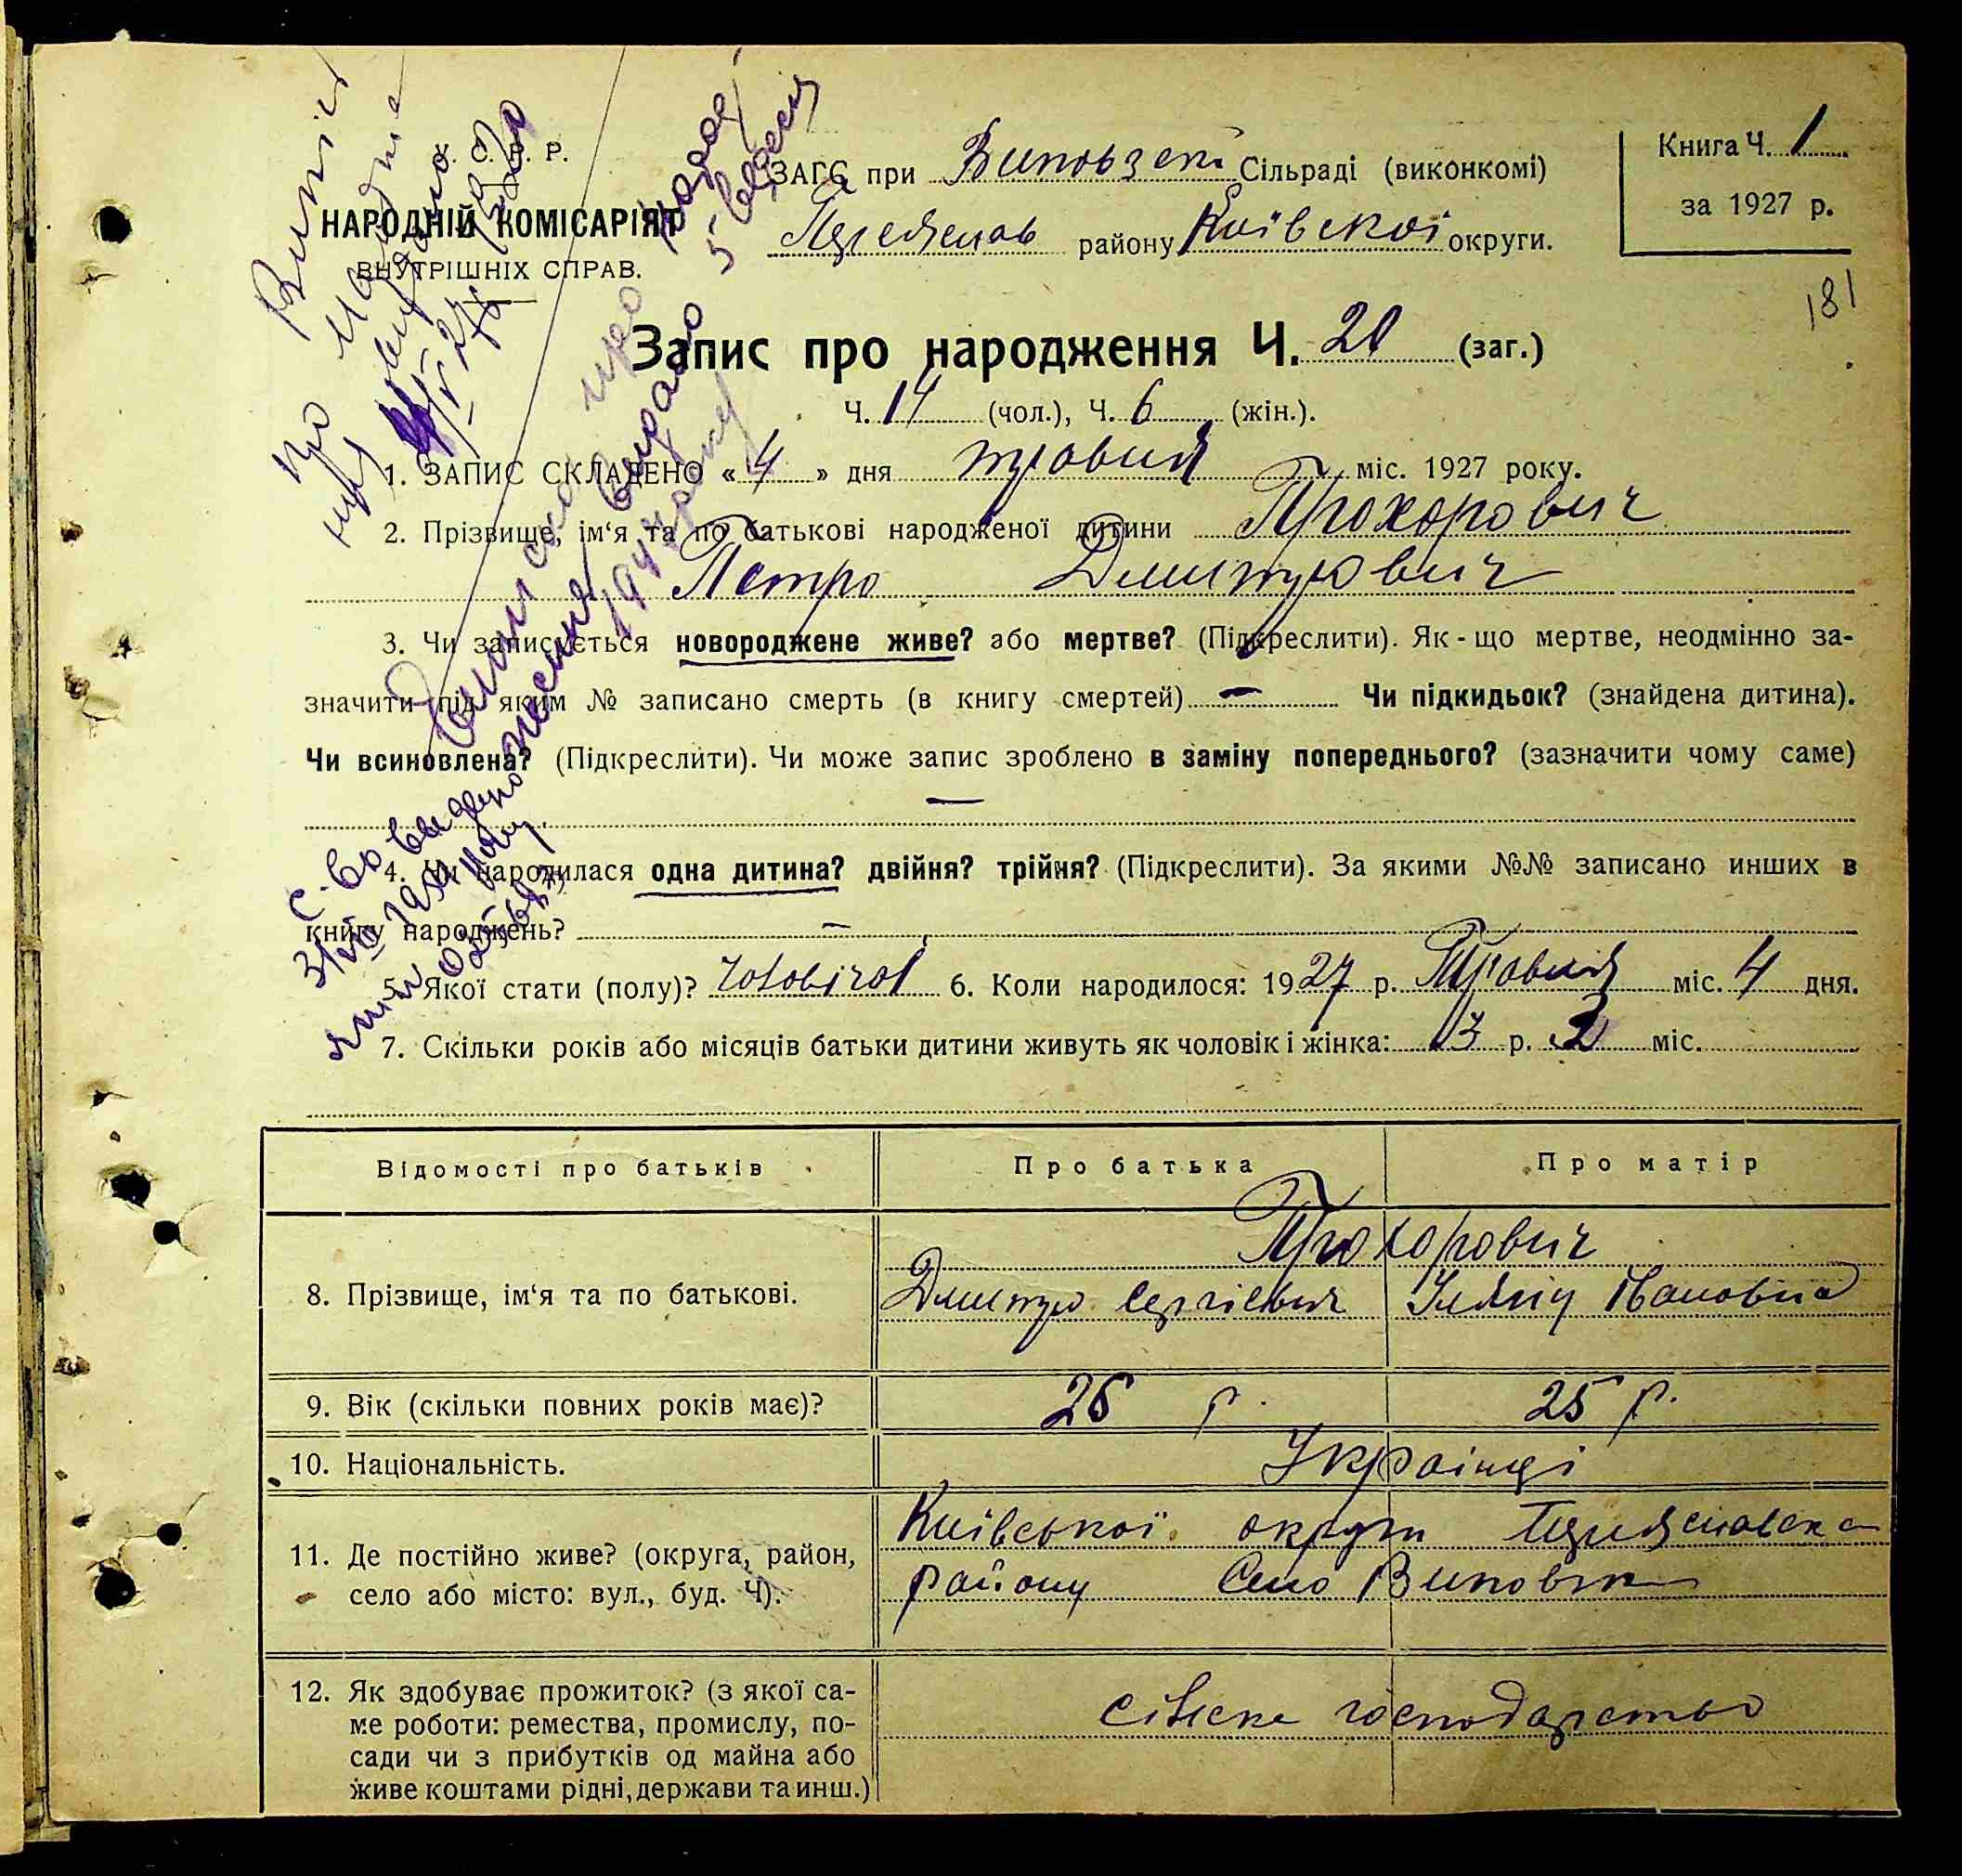 У. С. Р. Р.
НАРОДНІЙ КОМІСАРІЯТ
ВНУТРІШНІХ СПРАВ.
ЗАГС при Виповзскі Сільраді (виконкомі)
району Київскої округи.
Книга Ч. 1
за 1927 р.
181
Запис про народження Ч. 20 (заг.)
Ч. 14 (чол.), Ч. 6 (жін.).
1. ЗАПИС СКЛАДЕНО «4» дня травня міс. 1927 року.
2. Прізвище, ім'я та по батькові народженої дитини Прохорович
Петро Дмитрович
3. Чи записується новороджене живе? або мертве? (Підкреслити). Як-що мертве, неодмінно за-
значити під яким № записано смерть (в книгу смертей) — Чи підкидьок? (знайдена дитина).
Чи всиновлена? (Підкреслити). Чи може запис зроблено в заміну попереднього? (зазначити чому саме)
—
4. Чи народилася одна дитина? двійня? трійня? (Підкреслити). За якими №№ записано инших в
книгу народжень? —
5. Якої стати (полу)? чоловічої 6. Коли народилося: 1927 р. Травня міс. 4 дня.
7. Скільки років або місяців батьки дитини живуть як чоловік і жінка: 3 р. 2 міс.
Відомості про батьків
Про батька
Про матір
8. Прізвище, ім'я та по батькові.
Прохорович
Дмитро Сергієвич
Івановна
9. Вік (скільки повних років має)?
26 р.
25 р.
10. Національність.
Українці
11. Де постійно живе? (округа, район,
село або місто: вул., буд. Ч).
Київської округи
району Село Виповзки
12. Як здобуває прожиток? (з якої са-
ме роботи: ремества, промислу, по-
сади чи з прибутків од майна або
живе коштами рідні, держави та инш.)
сільске господарство